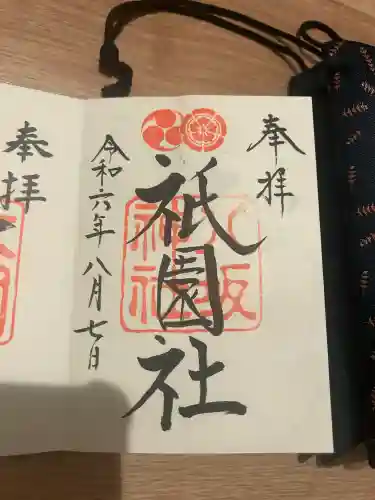 奉拝
八坂神社
祇園社
令和六年八月七日
奉拝